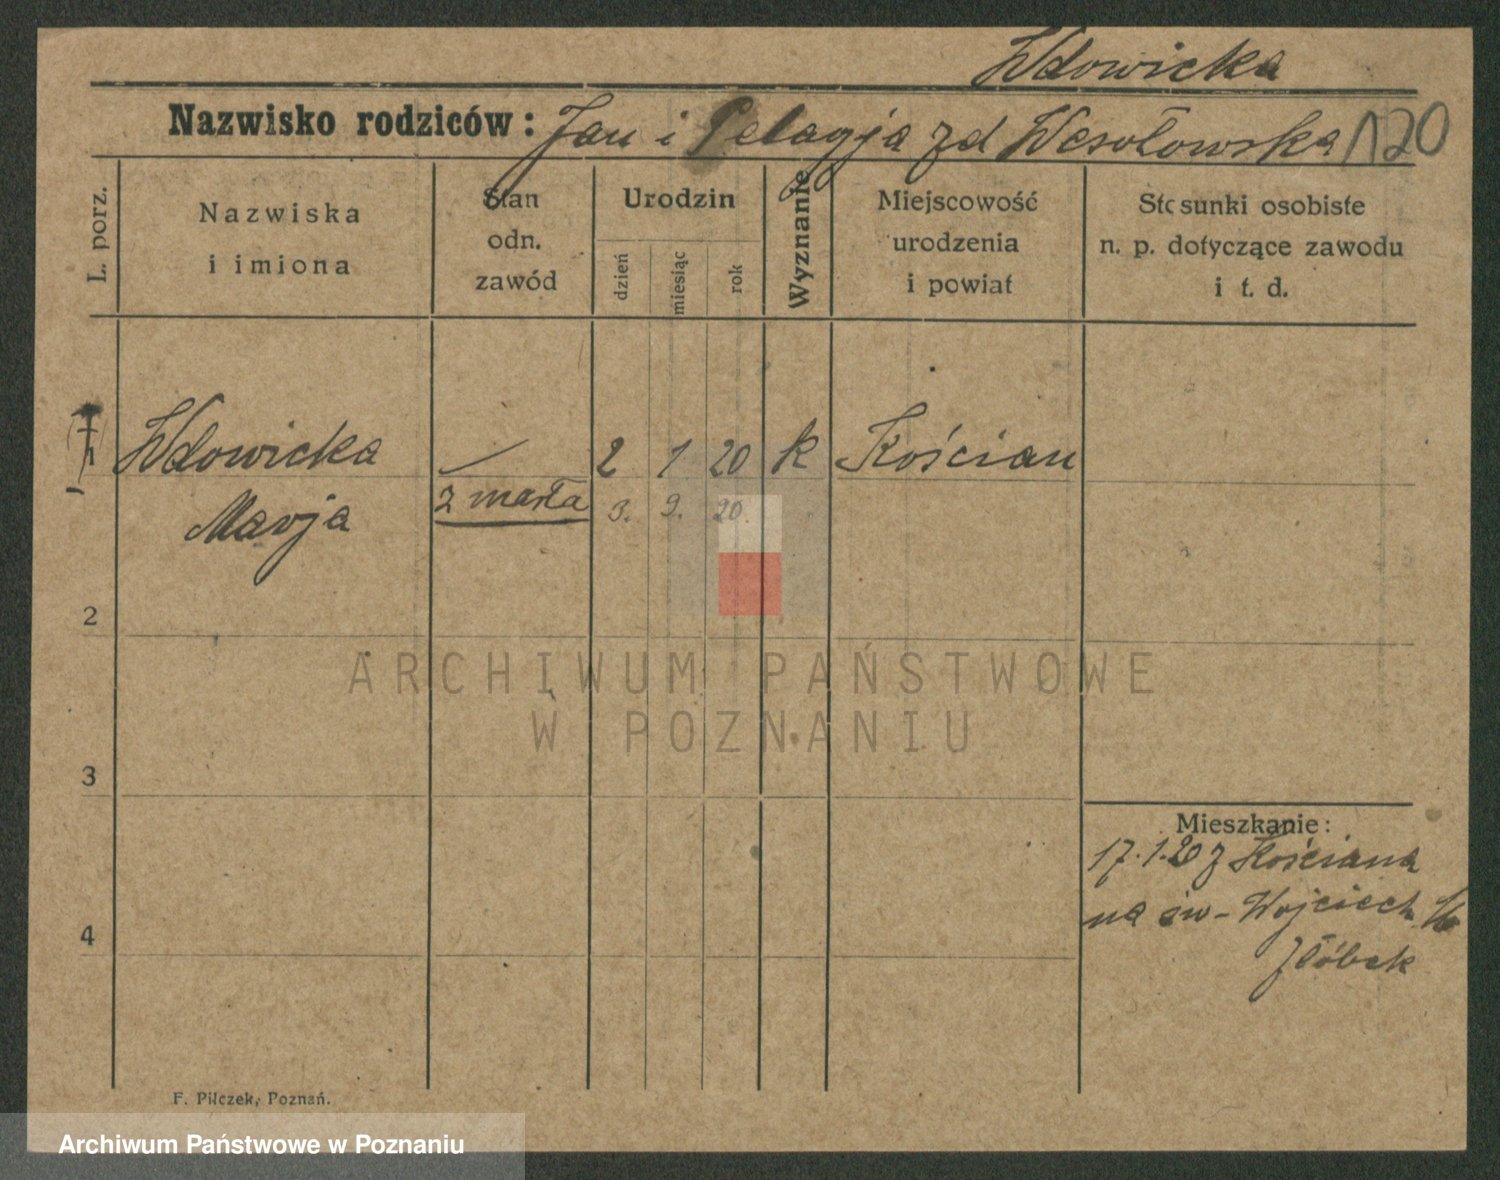 Wdowicka
Nazwisko rodziców: Jan i Pelagja zd Wesołowska 120
L. porz.
Nazwiska
i imiona
Stan
odn.
zawód
Urodzin
dzień
miesiąc
rok
Wyznanie
Miejscowość
urodzenia
i powiat
Stosunki osobiste
n. p. dotyczące zawodu
i t. d.
1 Wdowicka — 2 1 20 k Kościan
Marja zmarła 3. 9. 20.
2
3
4
ARCHIWUM PAŃSTWOWE
W POZNANIU
Mieszkanie:
17.1.20 z Kościana
na św-Wojciech
żłóbek
F. Pilczek, Poznań.
Archiwum Państwowe w Poznaniu